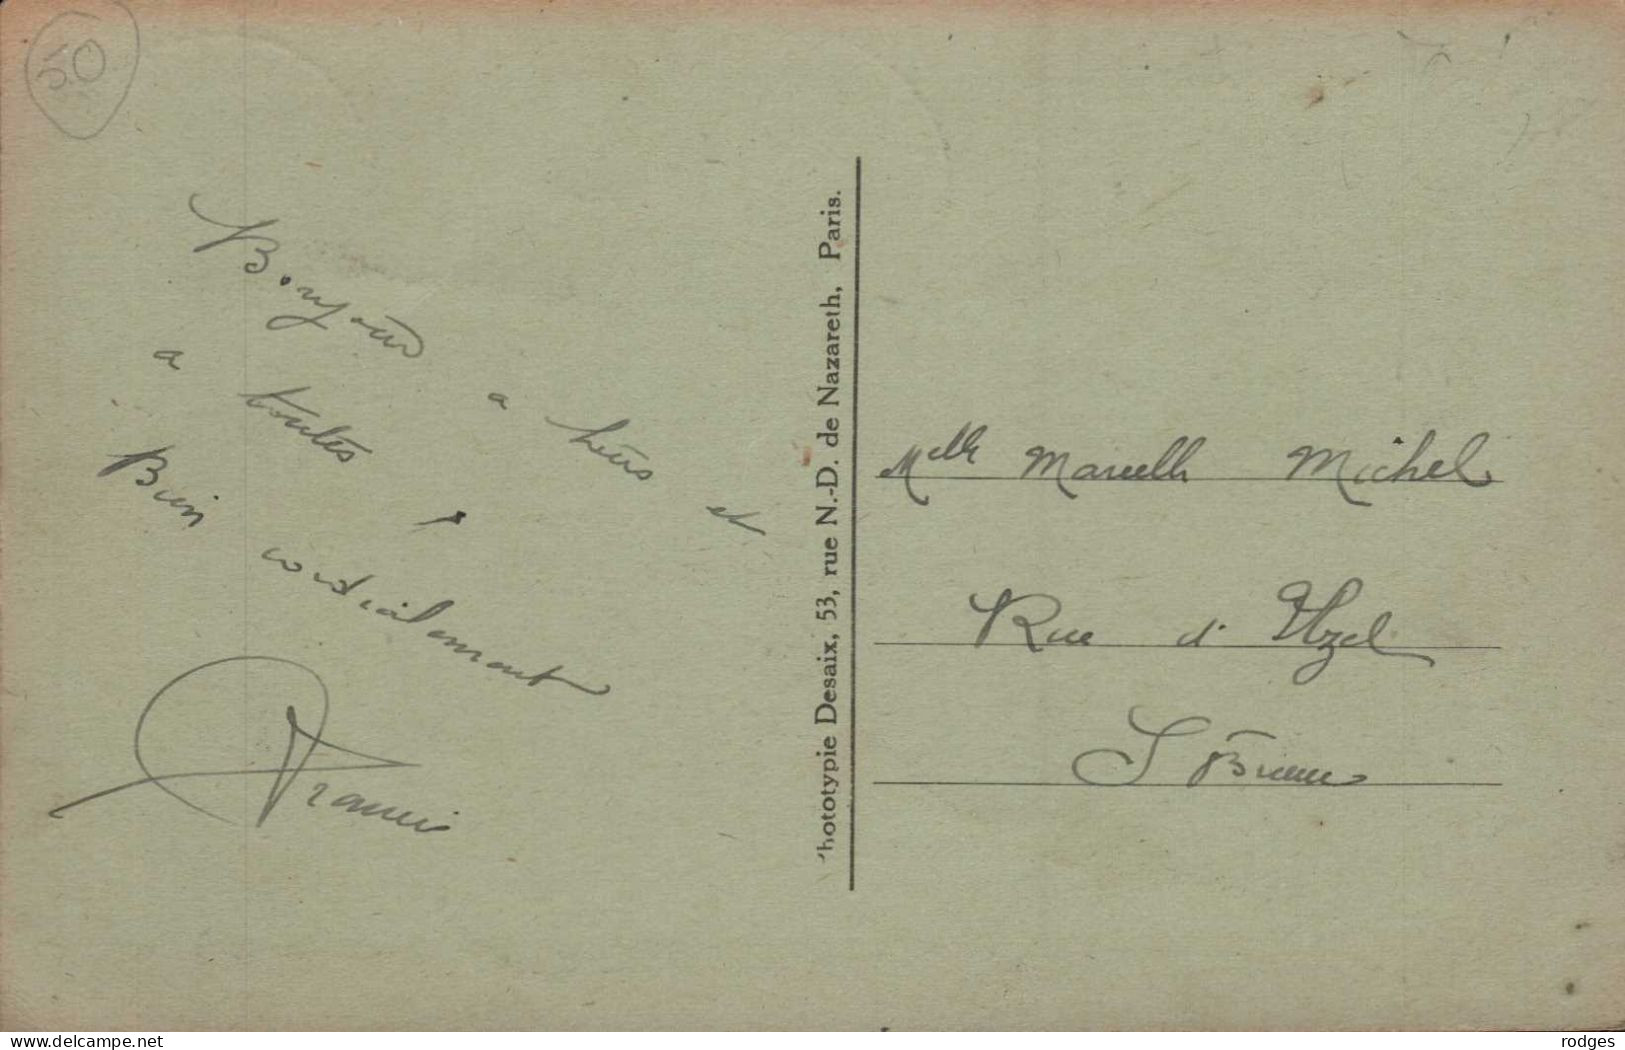 50
Bonjour a tous et
a toutes
Bien cordialement
Francis
Phototypie Desaix, 53, rue N.-D. de Nazareth, Paris.
Melle Marcelle Michel
Rue d' Uzel
St Brieuc
www.delcampe.net
rodges